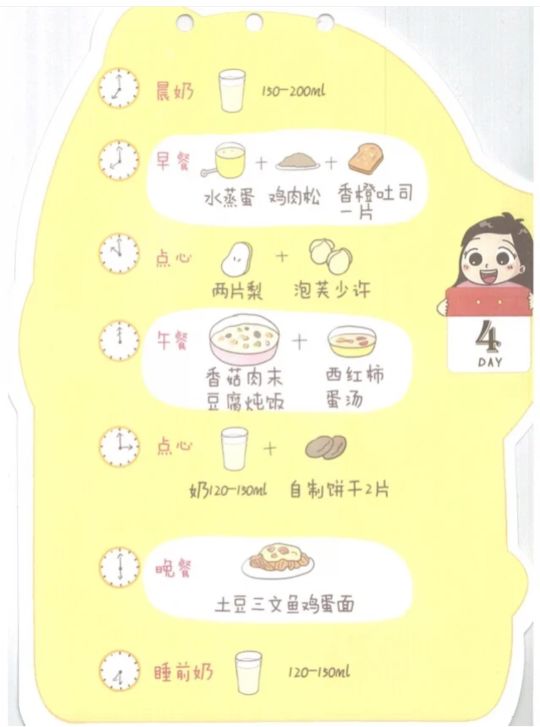 晨奶
150-200ml
早餐
水蒸蛋 鸡肉松 香橙吐司
一片
点心
两片梨 泡芙少许
午餐
香菇肉末 西红柿
豆腐炖饭 蛋汤
4
DAY
点心
奶120-150ml 自制饼干2片
晚餐
土豆三文鱼鸡蛋面
睡前奶
120-150ml